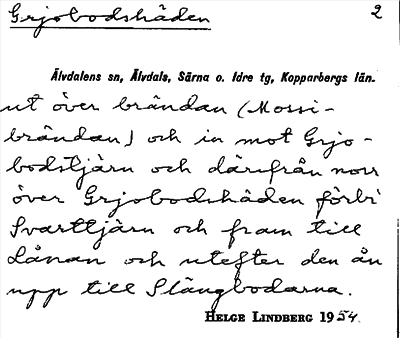 Grjobodshäden 2
Älvdalens sn, Älvdals, Särna o. Idre tg, Kopparbergs län.
ut över brändan (Mossi-
brändan) och in mot Grjo-
bodstjärn och därifrån norr
över Grjobodshäden förbi
Svarttjärn och fram till
Lånan och utefter den ån
upp till Slängbodarna.
HELGE LINDBERG 1954.